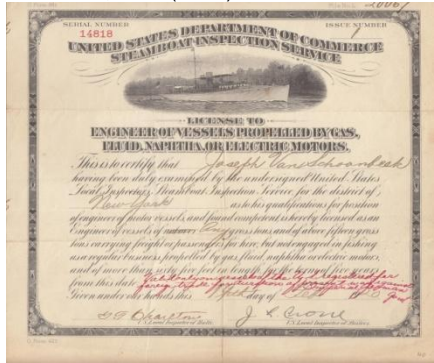 SERIAL NUMBER
14818
ISSUE NUMBER
UNITED STATES DEPARTMENT OF COMMERCE
STEAMBOAT-INSPECTION SERVICE
LICENSE TO
ENGINEER OF VESSELS PROPELLED BY GAS,
FLUID, NAPHTHA, OR ELECTRIC MOTORS.
This is to certify that Joseph Van Schoonbeek
having been duly examined by the undersigned United States
Local Inspectors, Steamboat-Inspection Service for the district of
New York as to his qualifications for position
of engineer of motor vessels, and found competent is hereby licensed as an
Engineer of vessels of gross tons, and of above fifteen gross
tons carrying freight or passengers for hire, but not engaged in fishing
as a regular business, propelled by gas, fluid, naphtha, or electric motors,
and of more than sixty five feet in length, for the term of five years
from this date
Given under our hands this day of
U.S. Local Inspector of Hulls.
J. L. Crone
U.S. Local Inspector of Boilers.